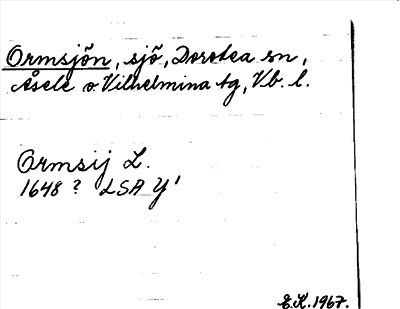 Ormsjön, sjö, Dorotea sn,
Åsele o. Vilhelmina tg, Vb. l.
Ormsij L.
1648? LSA Y¹
E.K. 1967.